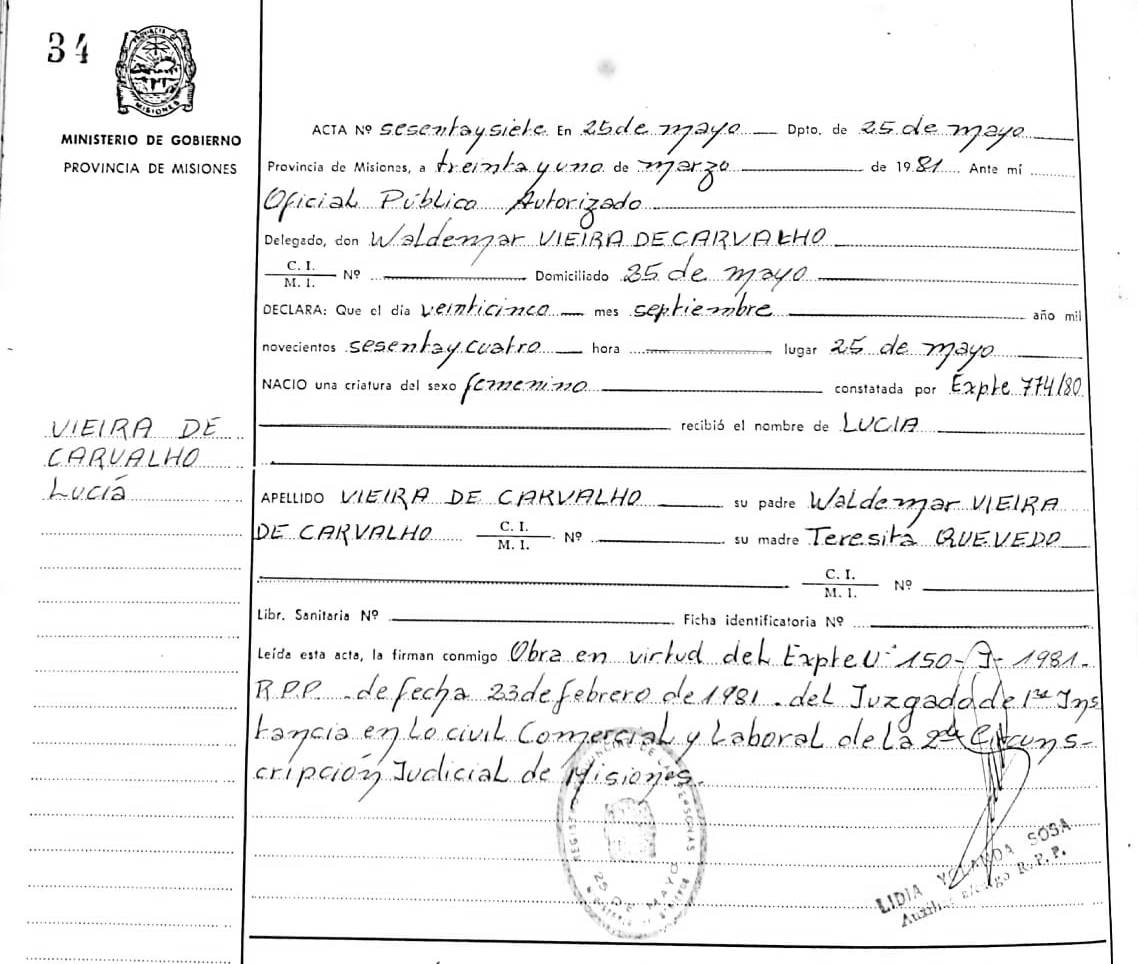 34
PROVINCIA DE
MISIONES
MINISTERIO DE GOBIERNO
PROVINCIA DE MISIONES
VIEIRA DE
CARVALHO
Lucía
ACTA Nº sesentaysiete En 25 de mayo Dpto. de 25 de mayo
Provincia de Misiones, a treinta y uno de marzo de 1981 Ante mí
Oficial Público Autorizado
Delegado, don Waldemar VIEIRA DE CARVALHO
C. I.
M. I. Nº Domiciliado 25 de mayo
DECLARA: Que el día veinticinco mes septiembre año mil
novecientos sesentaycuatro hora lugar 25 de mayo
NACIO una criatura del sexo femenino constatada por Expte 774/80
recibió el nombre de LUCIA
APELLIDO VIEIRA DE CARVALHO su padre Waldemar VIEIRA
DE CARVALHO C. I.
M. I. Nº su madre Teresita QUEVEDO
C. I.
M. I. Nº
Libr. Sanitaria Nº Ficha identificatoria Nº
Leída esta acta, la firman conmigo Obra en virtud del Expte Nº 150-J-1981-
R.P.P. de fecha 23 de febrero de 1981. del Juzgado de 1ra Ins
tancia en lo civil Comercial y Laboral de la 2da Circuns-
cripción Judicial de Misiones.
DE LAS PERSONAS
25 DE MAYO
LIDIA YOLANDA SOSA
R.P.P.